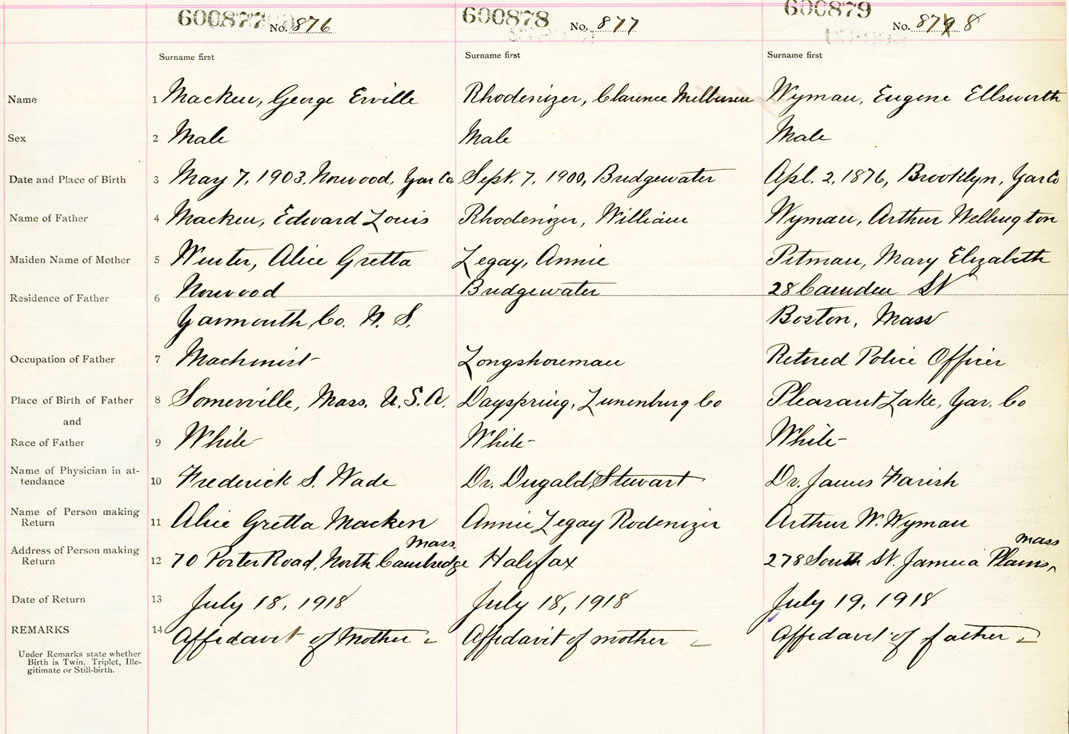 600877 No. 876 600878 No. 877 600879 No. 879 8
Surname first Surname first Surname first
Name 1 Macken, George Erville Rhodenizer, Clarence Wyman, Eugene Ellsworth
Sex 2 Male Male Male
Date and Place of Birth 3 May 7, 1903. Norwood, Yar Co Sept. 7, 1900, Bridgewater Apl. 2, 1876, Brooklyn, Yar Co
Name of Father 4 Macken, Edward Louis Rhodenizer, William Wyman, Arthur Wellington
Maiden Name of Mother 5 Winter, Alice Gretta Legay, Annie Pitman, Mary Elizabeth
Residence of Father 6 Norwood Bridgewater 28 Camden St
Yarmouth Co. N. S. Boston, Mass
Occupation of Father 7 Machinist Longshoreman Retired Police Officer
Place of Birth of Father 8 Somerville, Mass. U.S.A. Dayspring, Lunenburg Co Pleasant Lake, Yar. Co
and
Race of Father 9 White White White
Name of Physician in at- 10 Frederick S. Wade Dr. Dugald Stewart Dr. James Farish
tendance
Name of Person making 11 Alice Gretta Macken Annie Legay Rodenizer Arthur W. Wyman
Return
Address of Person making 12 70 Porter Road, North Cambridge Mass. Halifax 278 South St. Jamica Plains, Mass
Return
Date of Return 13 July 18, 1918 July 18, 1918 July 19, 1918
REMARKS 14 Affidavit of Mother Affidavit of mother Affidavit of father
Under Remarks state whether
Birth is Twin. Triplet, Ille-
gitimate or Still-birth.